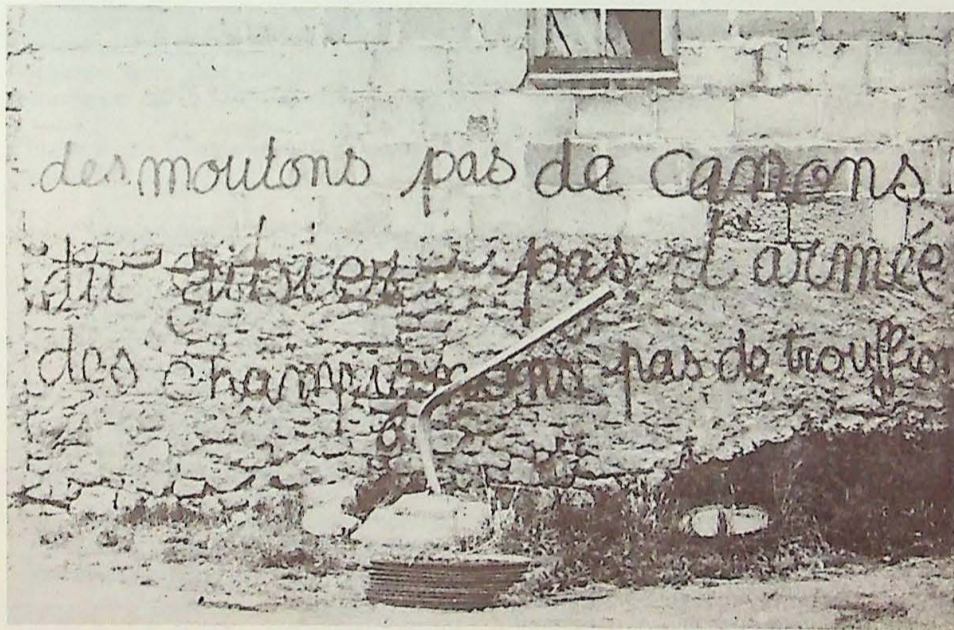 des moutons pas de canons
du pas d'armée
des champignons pas de trouffion